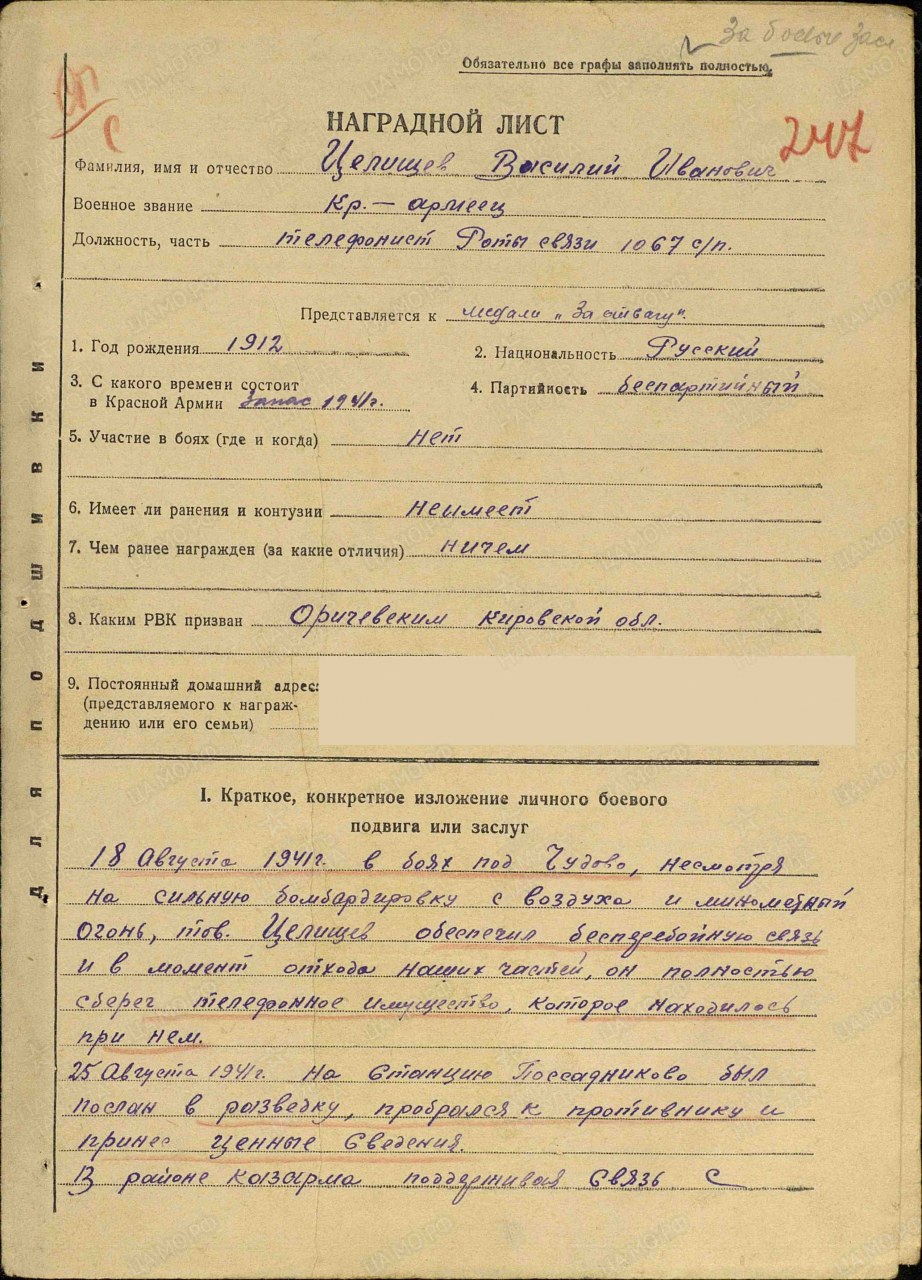 За боевые зас
Обязательно все графы заполнять полностью.
НАГРАДНОЙ ЛИСТ
247
Фамилия, имя и отчество Целищев Василий Иванович
Военное звание Кр.-армеец
Должность, часть телефонист Роты связи 1067 с/п.
Представляется к медали „За отвагу".
1. Год рождения 1912
2. Национальность Русский
3. С какого времени состоит
в Красной Армии Запас 1941г.
4. Партийность беспартийный
5. Участие в боях (где и когда) нет
6. Имеет ли ранения и контузии неимеет
7. Чем ранее награжден (за какие отличия) ничем
8. Каким РВК призван Оричевским Кировской обл.
9. Постоянный домашний адрес:
(представляемого к награж-
дению или его семьи)
I. Краткое, конкретное изложение личного боевого
подвига или заслуг
18 Августа 1941г. в боях под Чудово, несмотря
на сильную бомбардировку с воздуха и минометный
огонь, тов. Целищев обеспечил бесперебойную связь
и в момент отхода наших частей, он полностью
сберег телефонное имущество, которое находилось
при нем.
25 Августа 1941г. на Станцию Поссадниково был
послан в разведку, пробрался к противнику и
принес ценные Сведения.
В районе казарма поддерживая Связь с
ДЛЯ ПОДШИВКИ
ЦАМО.РФ